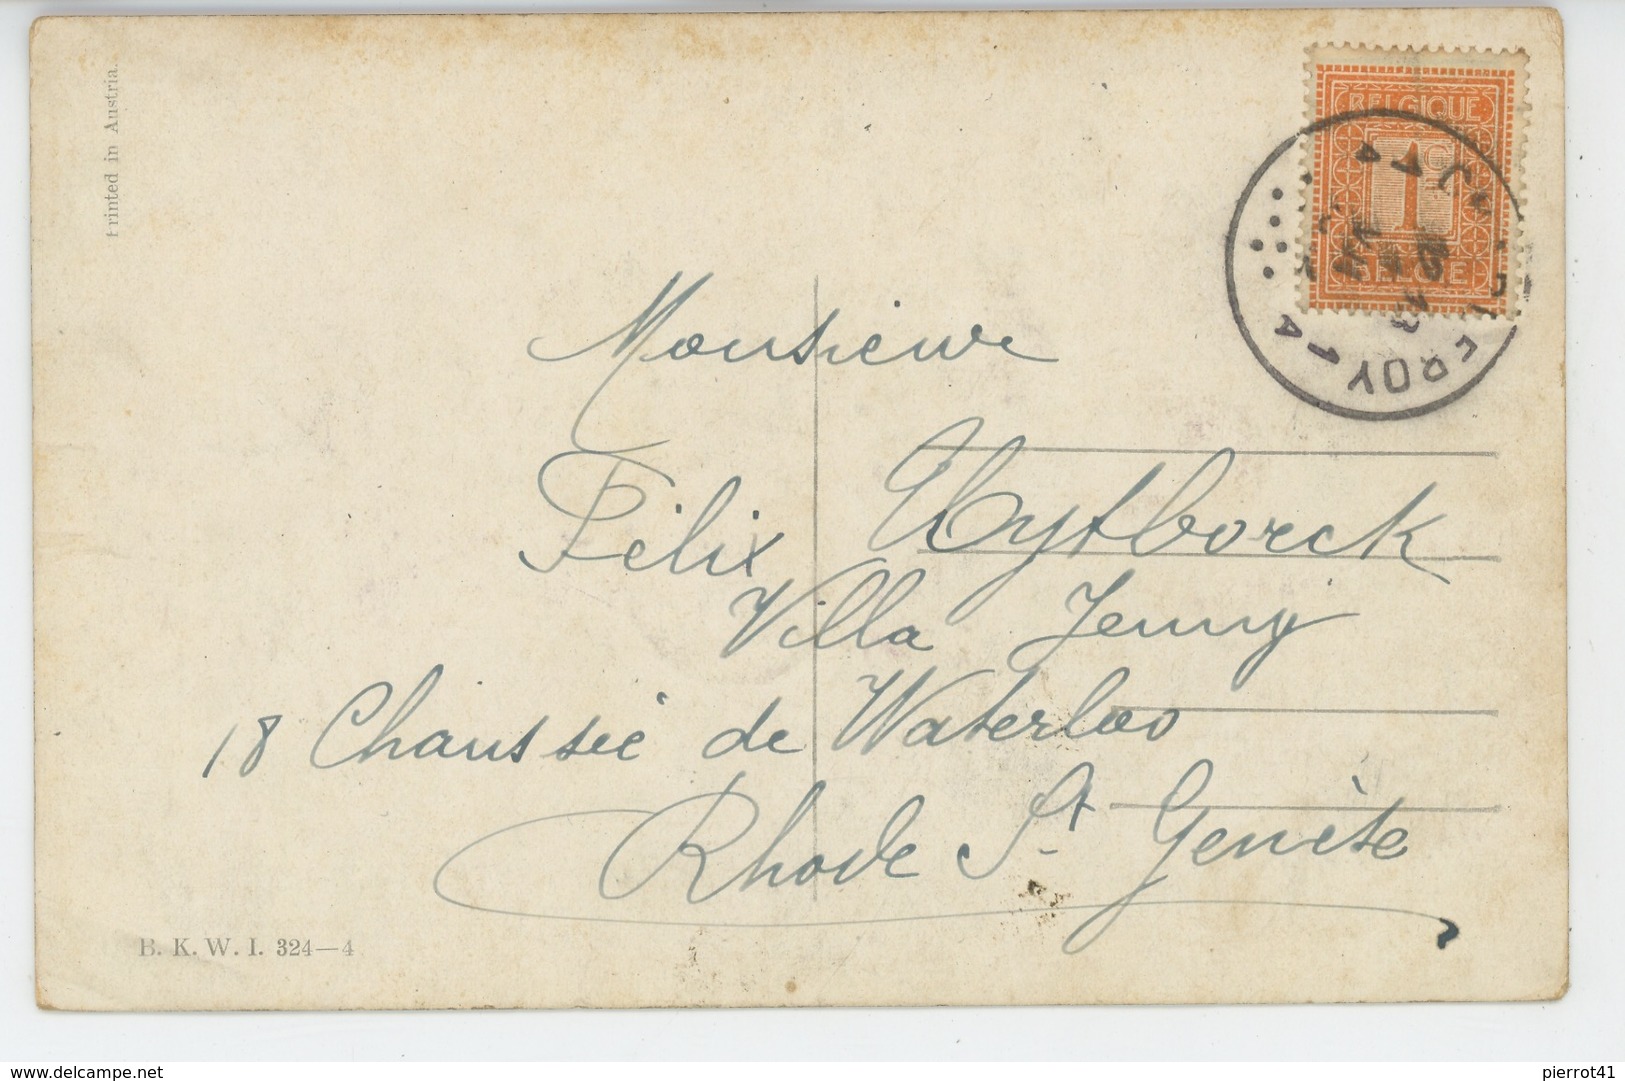 Printed in Austria.
BELGIQUE
1 C
BELGIË
ROY 1
A
Monsieur
Félix Uytborck
Villa Jenny
18 Chaussée de Waterloo
Rhode St Genèse
B. K. W. I. 324—4
www.delcampe.net
pierrot41